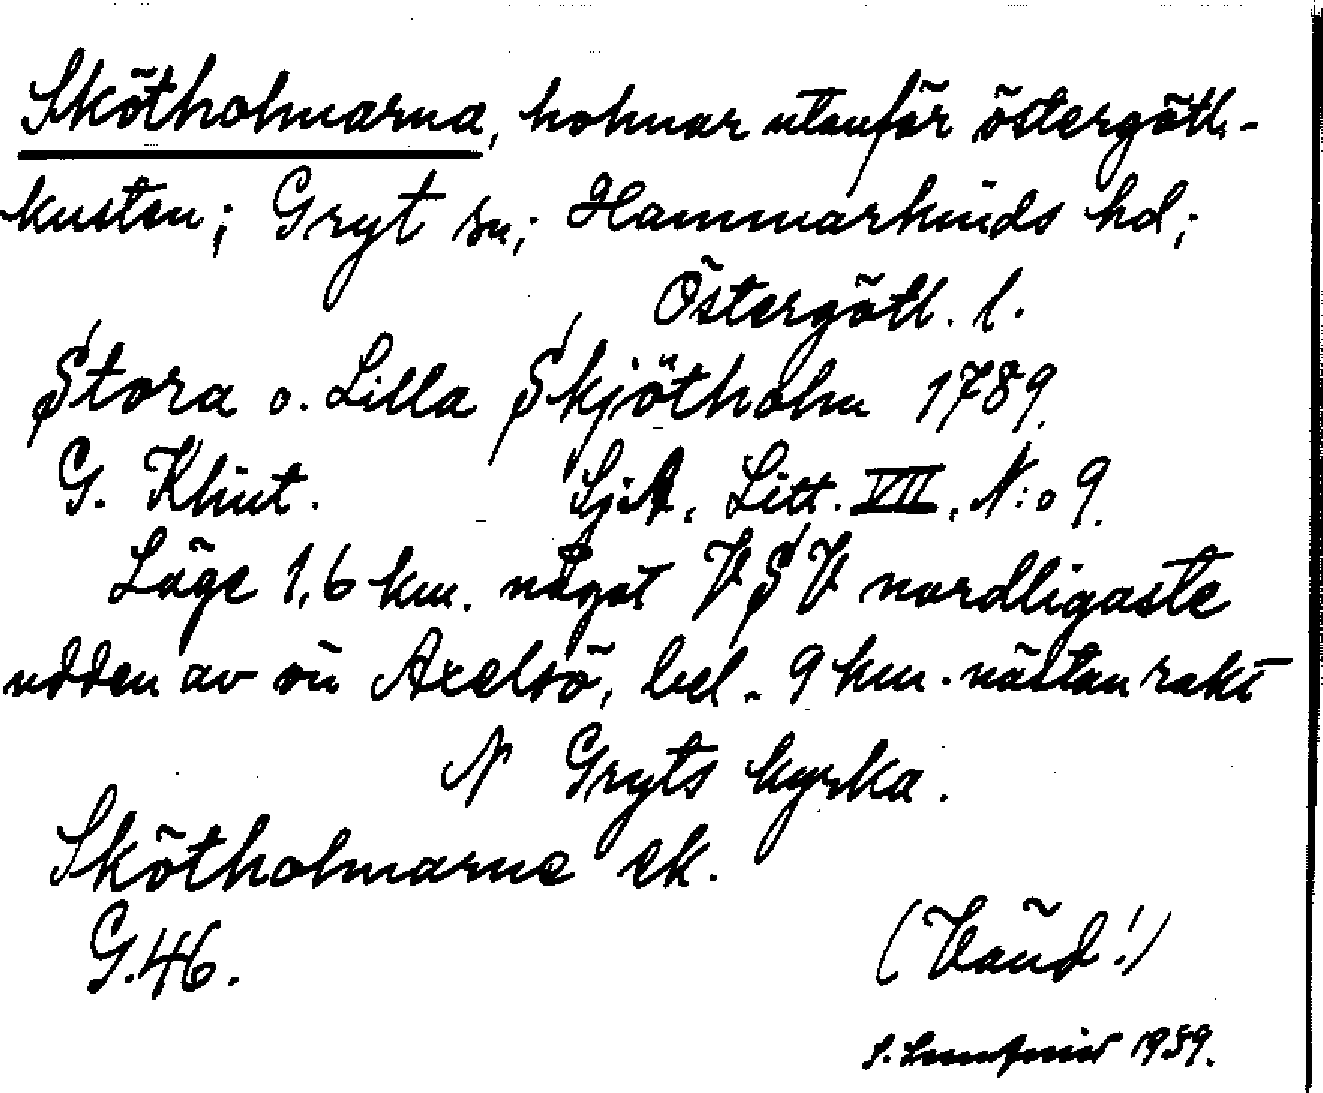 Skötholmarna, holmar utanför östergötl.-
kusten; Gryt sn; Hammarkinds hd;
Östergötl. l.
Stora o. Lilla Skjötholm 1789.
G. Klint. SjA. Litt. VII, N:o 9.
Läge 1,6 km. något VSV nordligaste
udden av ön Axelsö, bel. 9 km. nästan rakt
N Gryts kyrka.
Skötholmarne ek.
G.46.
(Vänd!)
S. 1939.